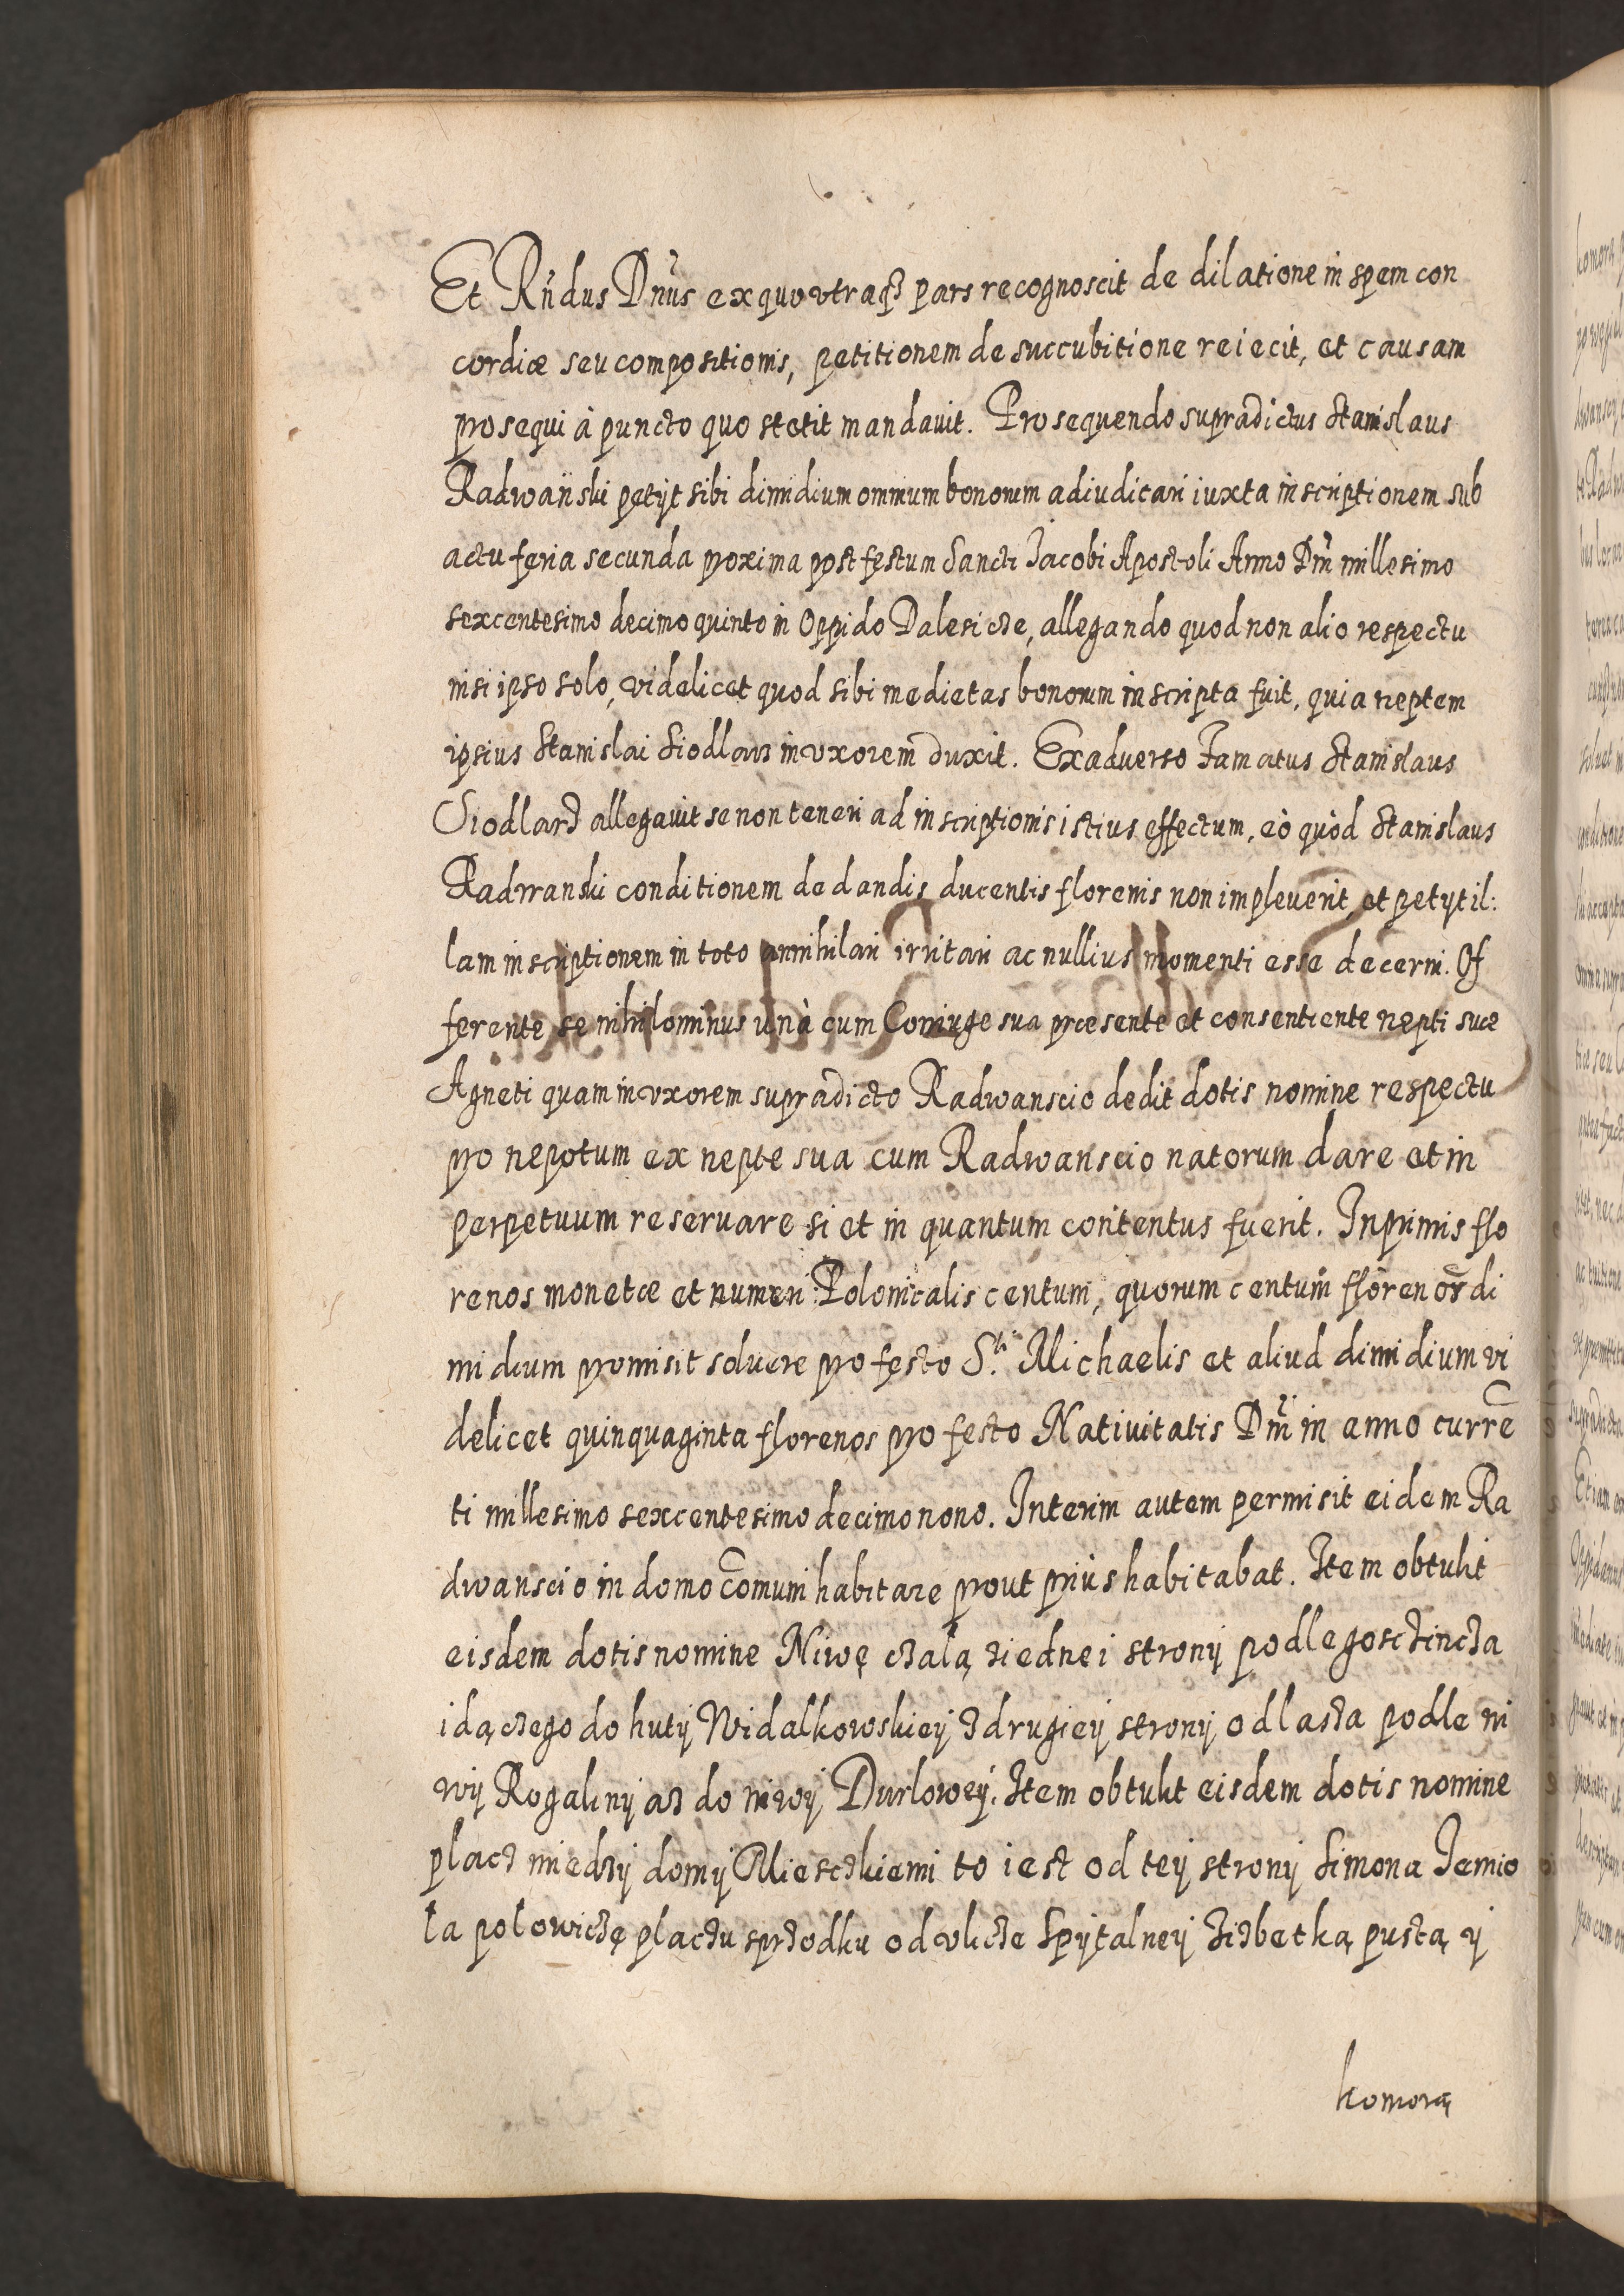 Et Rńdus Dnũs ex quo vtraqꝫ pars recognoscit de dilatione in spem con
cordiæ seu compositionis, petitionem de succubitione reiecit, et causam
prosequi à puncto quo stetit mandauit. Prosequendo supradictus Stanislaus
Radwański petijt sibi dimidium omnium bonorum adiudicari iuxta inscriptionem sub
actu feria secunda proxima post festum Sancti Jacobi Apostoli Anno Dnĩ millesimo
sexcentesimo decimo quinto in Oppido Dalesicze, allegando quod non alio respectu
nisi ipso solo, videlicet quod sibi medietas bonorum inscripta fuit, quia neptem
ipsius Stanislai Siodlarz in vxorem duxit. Exaduerso Famatus Stanislaus
Siodlarz allegauit se non teneri ad inscriptionis istius effectum, eò quòd Stanislaus
Radwanski conditionem de dandis ducentis florenis non impleuerit, et petyt il:
lam inscriptionem in toto annihilari irritari ac nullius momenti esse decerni. Of
ferente se nihilominus unà cum Coniuge sua præsente et consentiente nepti suæ
Agneti quam in vxorem supradicto Radwanscio dedit dotis nomine respectu
pro nepotum ex nepte sua cum Radwanscio natorum dare et in
perpetuum reseruare si et in quantum contentus fuerit. Inprimis flo
renos monetæ et numeri Polonicalis centum, quorum centum florenoꝝ di
midium promisit soluere pro festo S.ti Michaelis et aliud dimidium vi
delicet quinquaginta florenos pro festo Natiuitatis Dnĩ in anno currẽ
ti millesimo sexcentesimo decimo nono. Interim autem permisit eidem Ra
dwanscio in domo cõmuni habitare prout priùs habitabat. Item obtulit
eisdem dotis nomine Niwę czałą ziednei strony podle gosczincza
idączego do huty Widalkowskiey z drugiey strony od lasza podle ni
wy Rogaliny az do niwy Durlowey. Item obtulit eisdem dotis nomine
placz miedzy domy Miesczkiemi to iest od tey strony Simona Jemio
ła połowiczę placzu sprzodku od vlicze Spytalney zizbetką pustą y
komorą